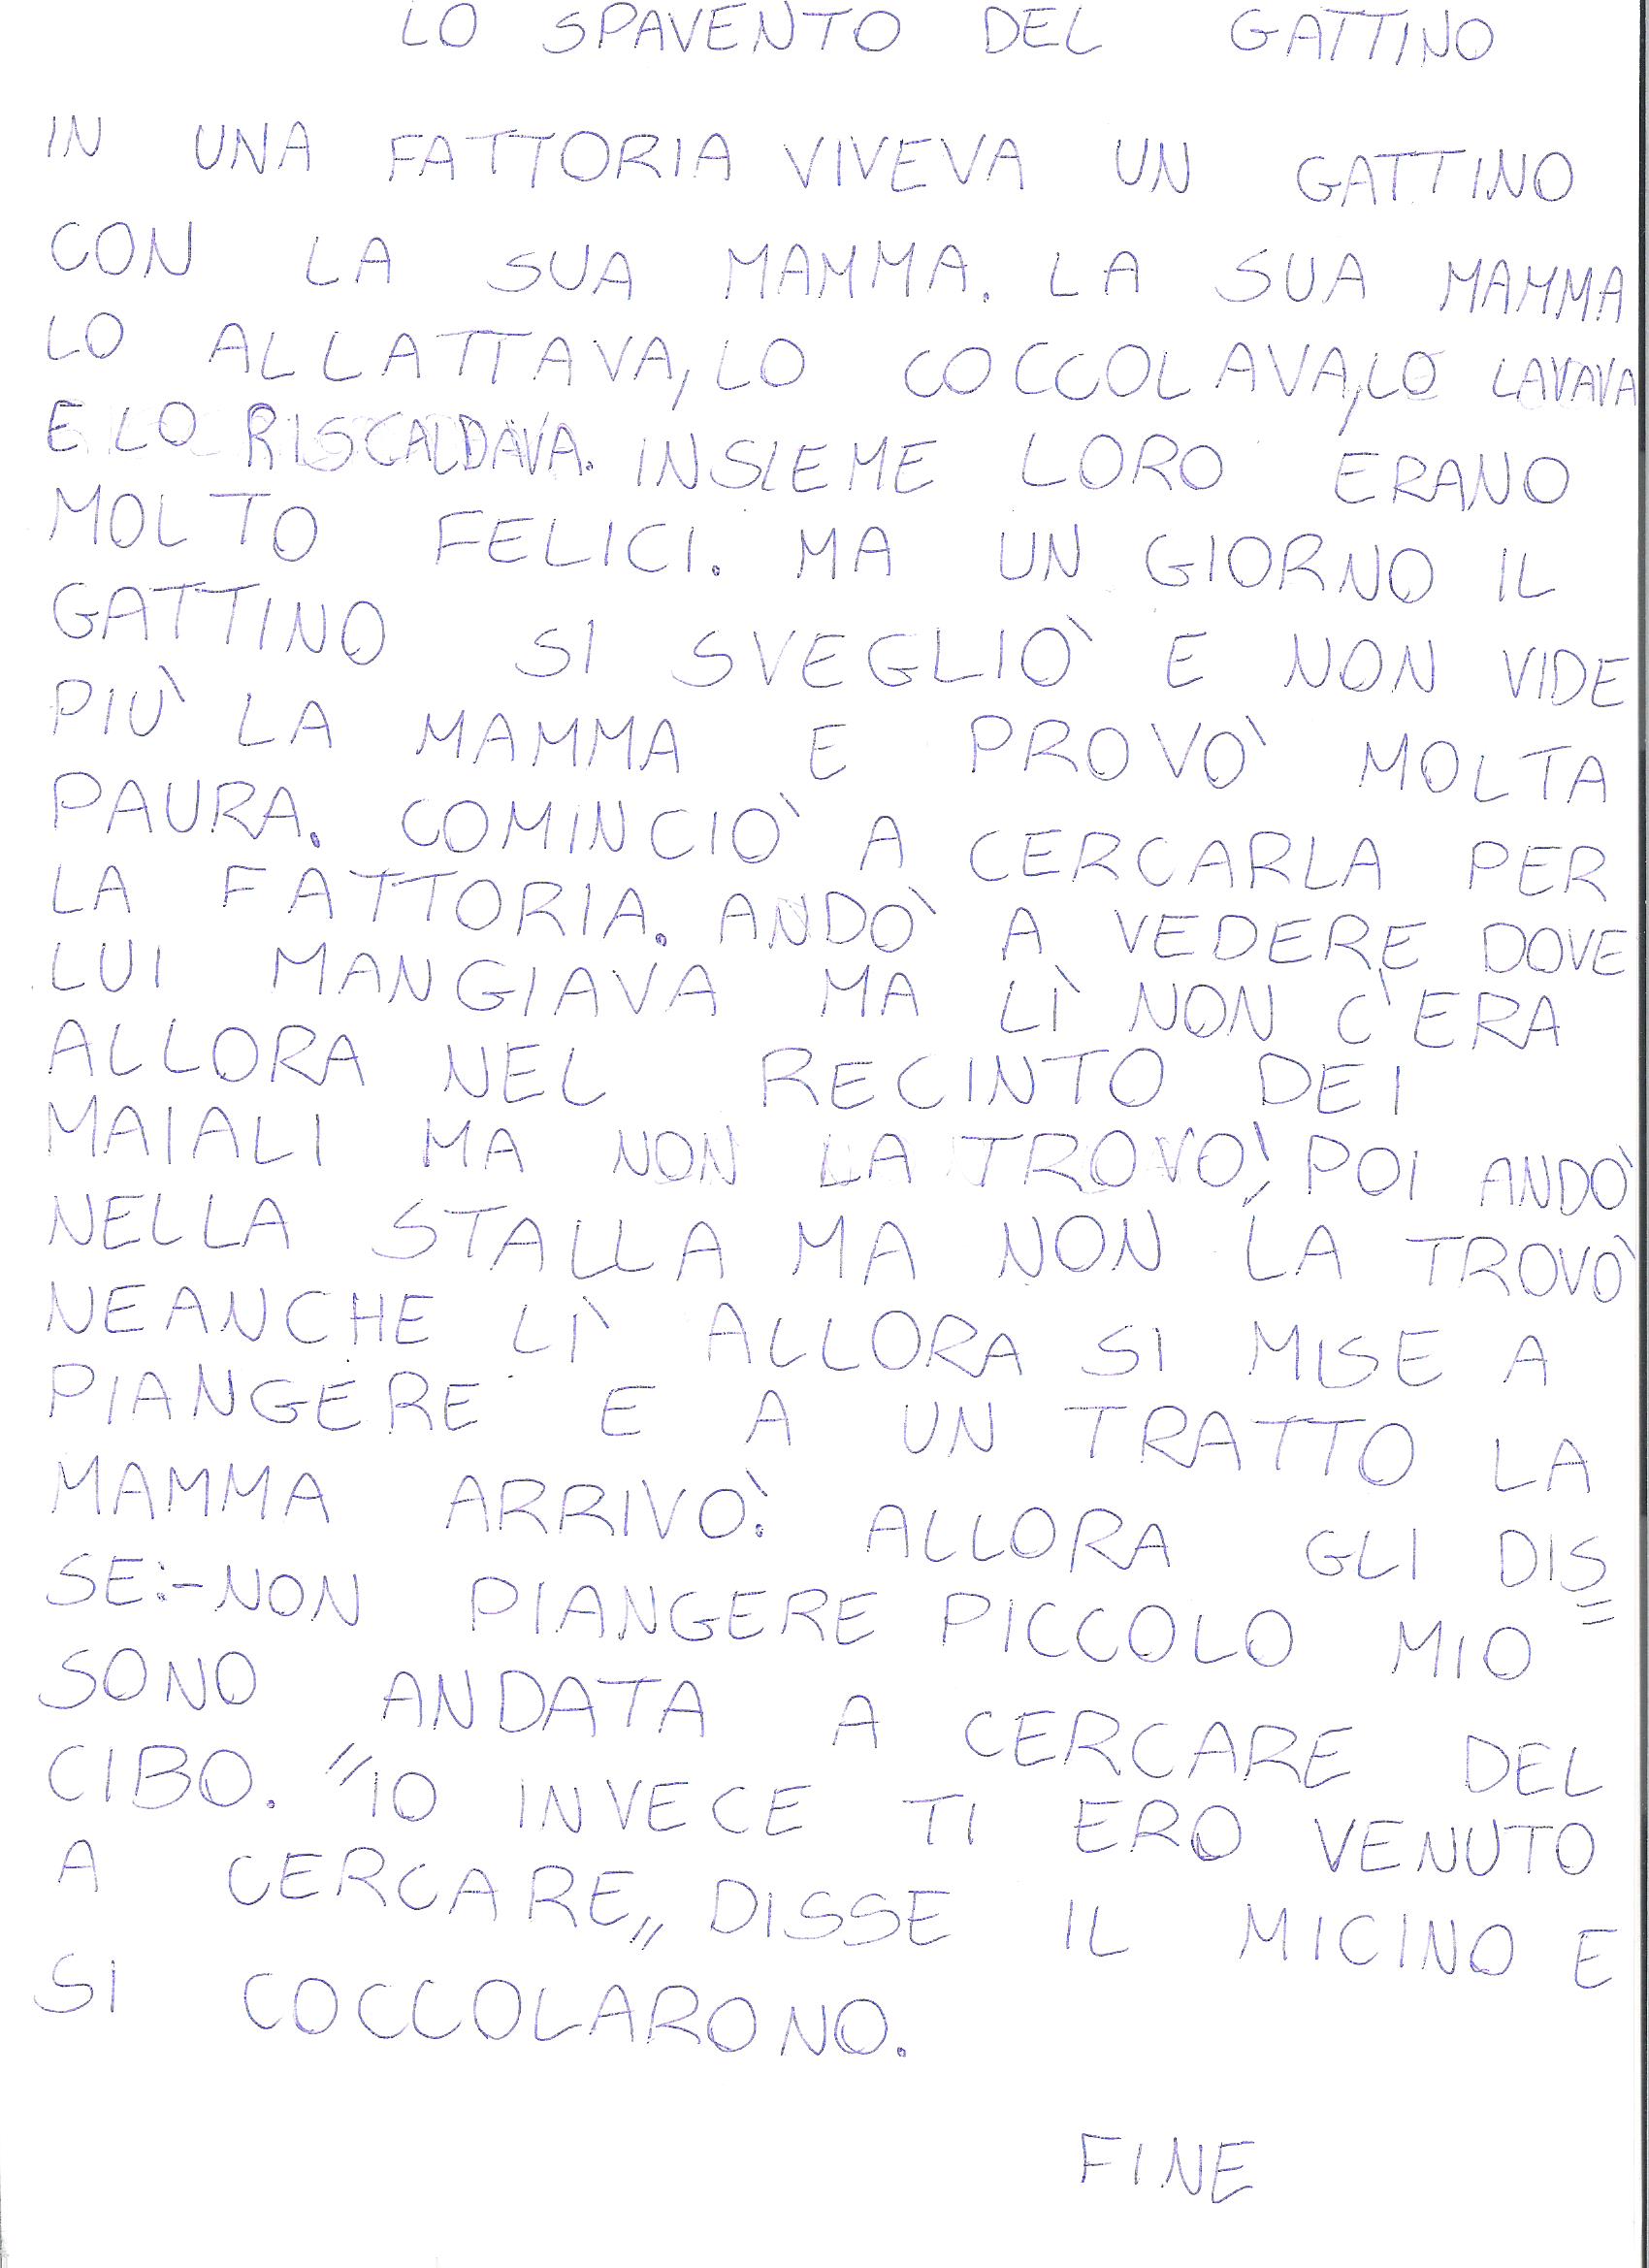 LO SPAVENTO DEL GATTINO
IN UNA FATTORIA VIVEVA UN GATTINO
CON LA SUA MAMMA. LA SUA MAMMA
LO ALLATTAVA, LO COCCOLAVA, LO LAVAVA
E LO RISCALDAVA. INSIEME LORO ERANO
MOLTO FELICI. MA UN GIORNO IL
GATTINO SI SVEGLIÒ E NON VIDE
PIÙ LA MAMMA E PROVO' MOLTA
PAURA. COMINCIO' A CERCARLA PER
LA FATTORIA. ANDO' A VEDERE DOVE
LUI MANGIAVA MA LÌ NON C'ERA
ALLORA NEL RECINTO DEI
MAIALI MA NON LA TROVO', POI ANDÒ
NELLA STALLA MA NON LA TROVÒ
NEANCHE LÌ ALLORA SI MISE A
PIANGERE E A UN TRATTO LA
MAMMA ARRIVO'. ALLORA GLI DIS=
SE:-NON PIANGERE PICCOLO MIO
SONO ANDATA A CERCARE DEL
CIBO. "IO INVECE TI ERO VENUTO
A CERCARE,, DISSE IL MICINO E
SI COCCOLARONO.
FINE